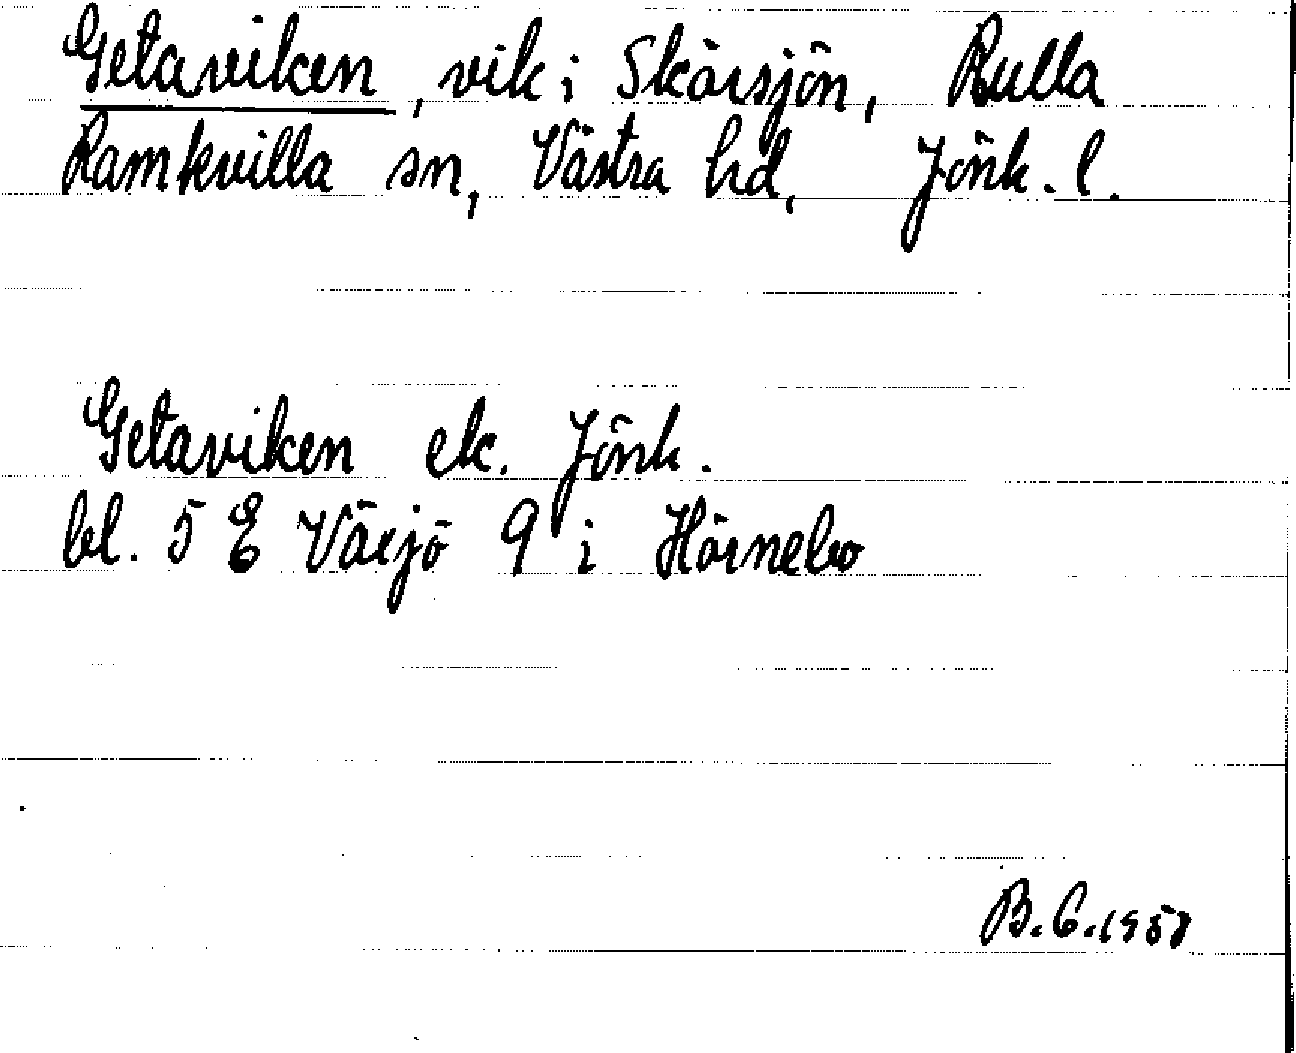 Getaviken, vik i Skärsjön, Rulla
Ramkvilla sn, Västra hd, Jönk. l.
Getaviken ek. Jönk.
bl. 5 E Växjö 9 i Hörnebo
B.G. 1958